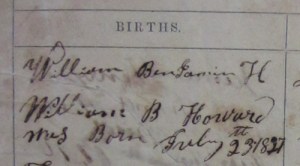 BIRTHS.
William Benjamin H
William B Howard
was Born July 23th 1827